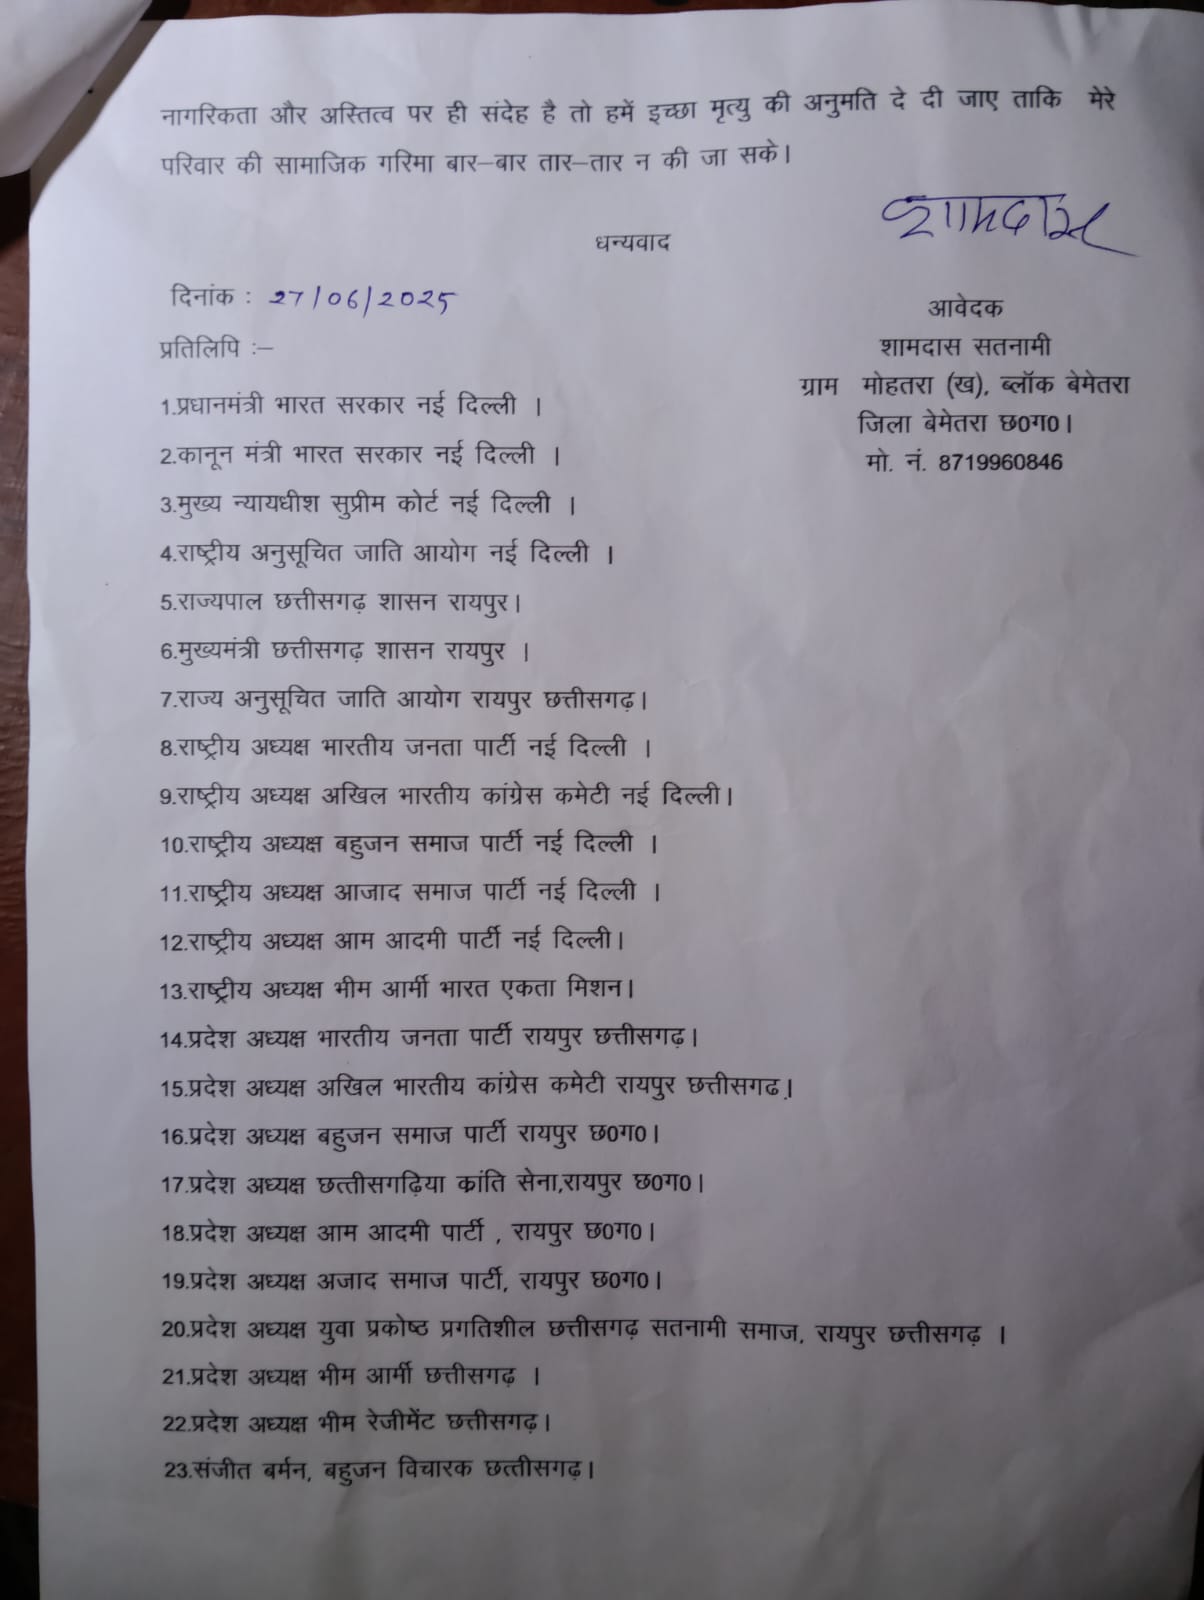 नागरिकता और अस्तित्व पर ही संदेह है तो हमें इच्छा मृत्यु की अनुमति दे दी जाए ताकि मेरे
परिवार की सामाजिक गरिमा बार–बार तार–तार न की जा सके।
शामदास
धन्यवाद
दिनांक : 27/06/2025
आवेदक
शामदास सतनामी
ग्राम मोहतरा (ख), ब्लॉक बेमेतरा
जिला बेमेतरा छ0ग0।
मो. नं. 8719960846
प्रतिलिपि :–
1.प्रधानमंत्री भारत सरकार नई दिल्ली ।
2.कानून मंत्री भारत सरकार नई दिल्ली ।
3.मुख्य न्यायधीश सुप्रीम कोर्ट नई दिल्ली ।
4.राष्ट्रीय अनुसूचित जाति आयोग नई दिल्ली ।
5.राज्यपाल छत्तीसगढ़ शासन रायपुर।
6.मुख्यमंत्री छत्तीसगढ़ शासन रायपुर ।
7.राज्य अनुसूचित जाति आयोग रायपुर छत्तीसगढ़।
8.राष्ट्रीय अध्यक्ष भारतीय जनता पार्टी नई दिल्ली ।
9.राष्ट्रीय अध्यक्ष अखिल भारतीय कांग्रेस कमेटी नई दिल्ली।
10.राष्ट्रीय अध्यक्ष बहुजन समाज पार्टी नई दिल्ली ।
11.राष्ट्रीय अध्यक्ष आजाद समाज पार्टी नई दिल्ली ।
12.राष्ट्रीय अध्यक्ष आम आदमी पार्टी नई दिल्ली।
13.राष्ट्रीय अध्यक्ष भीम आर्मी भारत एकता मिशन।
14.प्रदेश अध्यक्ष भारतीय जनता पार्टी रायपुर छत्तीसगढ़।
15.प्रदेश अध्यक्ष अखिल भारतीय कांग्रेस कमेटी रायपुर छत्तीसगढ.।
16.प्रदेश अध्यक्ष बहुजन समाज पार्टी रायपुर छ0ग0।
17.प्रदेश अध्यक्ष छत्तीसगढ़िया क्रांति सेना,रायपुर छ0ग0।
18.प्रदेश अध्यक्ष आम आदमी पार्टी , रायपुर छ0ग0।
19.प्रदेश अध्यक्ष अजाद समाज पार्टी, रायपुर छ0ग0।
20.प्रदेश अध्यक्ष युवा प्रकोष्ठ प्रगतिशील छत्तीसगढ़ सतनामी समाज, रायपुर छत्तीसगढ़ ।
21.प्रदेश अध्यक्ष भीम आर्मी छत्तीसगढ़ ।
22.प्रदेश अध्यक्ष भीम रेजीमेंट छत्तीसगढ़।
23.संजीत बर्मन, बहुजन विचारक छत्तीसगढ़।